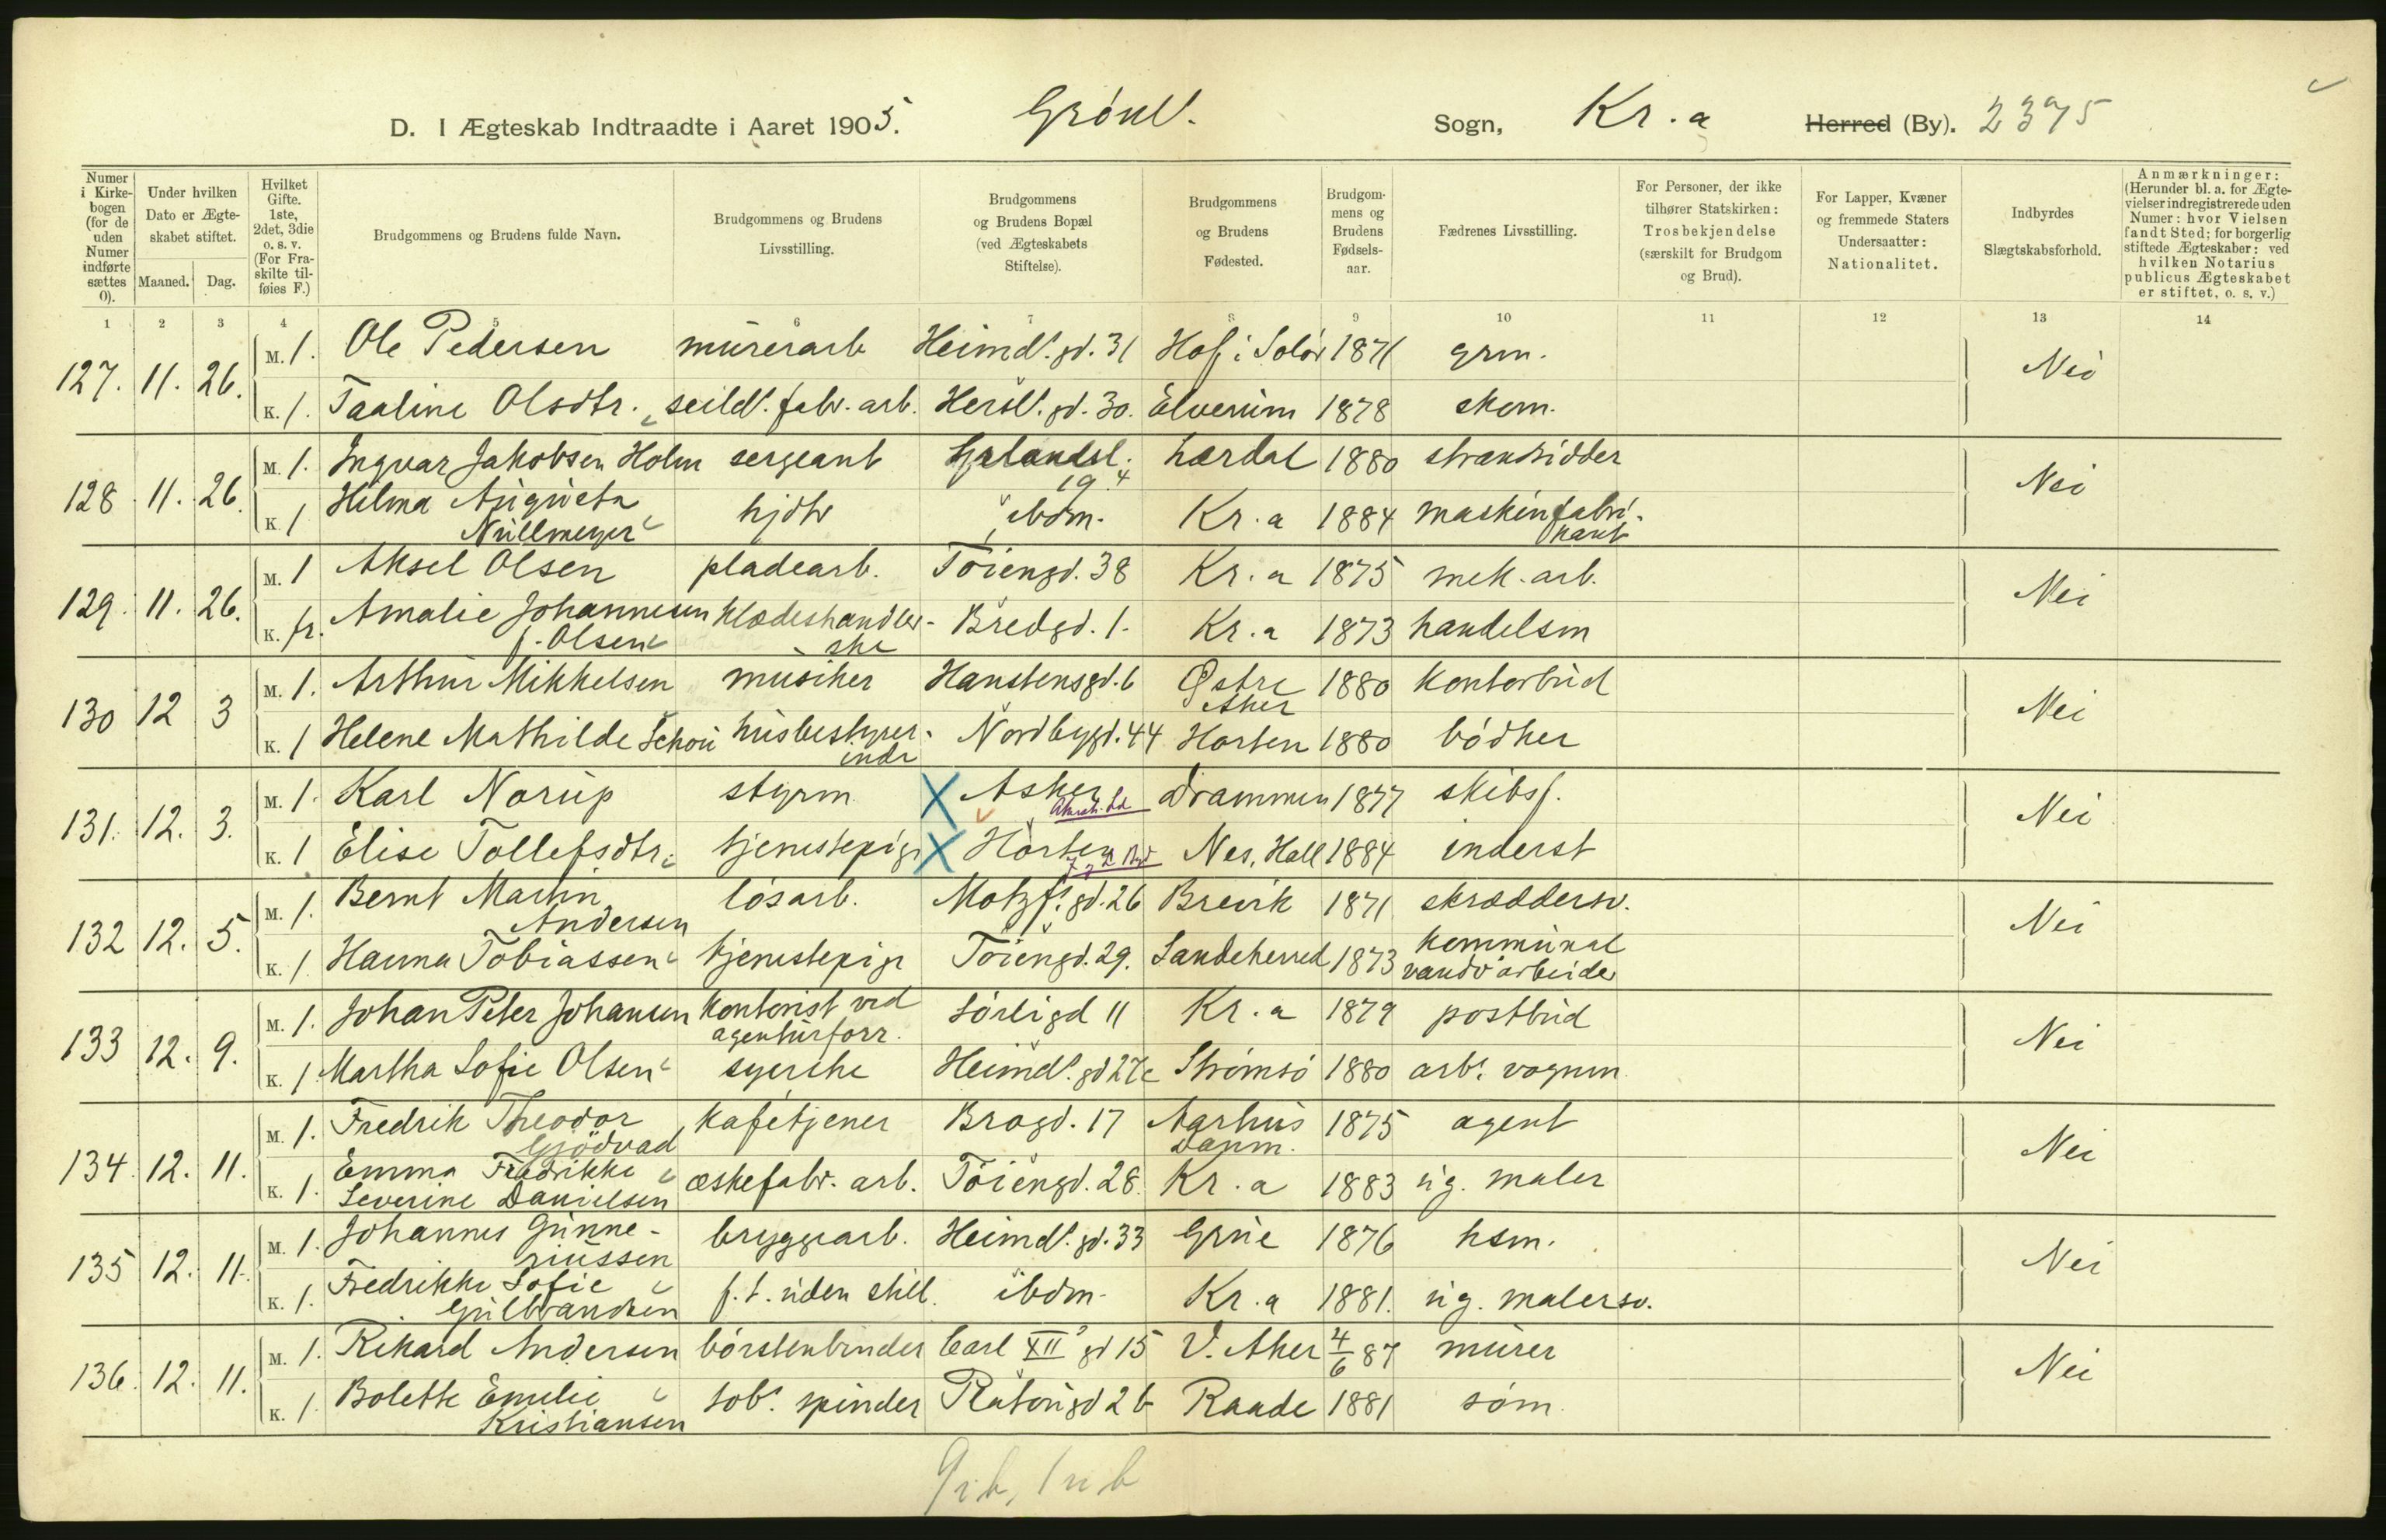 D. I Ægteskab Indtraadte i Aaret 1905. Grønl. Sogn, Kr.a Herred (By). 2375
Numer i Kirkebogen (for de uden Numer indførte sættes 0).
Under hvilken Dato er Ægteskabet stiftet.
Maaned. Dag.
Hvilket Gifte. 1ste, 2det, 3die o. s. v. (For Fraskilte tilføies F.)
Brudgommens og Brudens fulde Navn.
Brudgommens og Brudens Livsstilling.
Brudgommens og Brudens Bopæl (ved Ægteskabets Stiftelse).
Brudgommens og Brudens Fødested.
Brudgommens og Brudens Fødselsaar.
Fædrenes Livsstilling.
For Personer, der ikke tilhører Statskirken: Trosbekjendelse (særskilt for Brudgom og Brud).
For Lapper, Kvæner og fremmede Staters Undersaatter: Nationalitet.
Indbyrdes Slægtskabsforhold.
Anmærkninger: (Herunder bl. a. for Ægtevielser indregistrerede uden Numer: hvor Vielsen fandt Sted; for borgerlig stiftede Ægteskaber: ved hvilken Notarius publicus Ægteskabet er stiftet, o. s. v.)
1 2 3 4 5 6 7 8 9 10 11 12 13 14
127. 11. 26. M. 1. Ole Pedersen murerarb Heimd. gd. 31 Hof i Solør 1871 grm. Nei
K. 1. Taaline Olsdtr. seild. fabr. arb. Hersl. gd. 30. Elverum 1878 skom.
128 11. 26. M. 1. Ingvar Jakobsen Holm sergeant Grlandsl. 19.4 Lærdal 1880 strandsidder Nei
K. 1 Hilma Augusta Nullmeyer hjdtr ibdm. Kr.a 1884 maskinfabrikant
129. 11. 26. M. 1 Aksel Olsen pladearb. Tøiengd. 38 Kr.a 1875 mek. arb. Nei
K. fr. Amalie Johannesen f. Olsen klædeshandlerske Bredgd. 1. Kr.a 1873 handelsm
130 12 3 M. 1. Arthur Mikkelsen musiker Hanstensgd. 6 Østre Aker 1880 kontorbud Nei
K. 1 Helene Mathilde Schou husbestyrerinde Nordbygd. 44 Horten 1880 bødker
131. 12. 3. M. 1. Karl Norup styrm X Asker Drammen 1877 skibsf. Nei
K. 1 Elise Tollefsdtr. tjenestepige X Horten Nes, Hall 1884 inderst
132 12. 5. M. 1. Bernt Martin Andersen løsarb. Motzf. gd. 26 Brevik 1871 skræddersv. Nei
K. 1 Hanna Tobiassen tjenestepige Tøiengd. 29. Sandeherred 1873 kommunal vandv arbeider
133 12. 9. M. 1. Johan Peter Johansen kontorist ved agenturforr. Sørligd 11 Kr.a 1879 postbud Nei
K. 1 Martha Sofie Olsen syerske Heimd. gd 27c Strømsø 1880 arb. vognm
134. 12. 11. M. 1. Fredrik Theodor Gjødvad kafétjener Brogd. 17 Aarhus Danm. 1875 agent Nei
K. 1. Emma Fredrikke Severine Danielsen æskefabr. arb. Tøiengd. 28. Kr.a 1883 ug. maler
135 12. 11. M. 1. Johannes Gunneriussen bryggearb. Heimd. gd. 33 Grue 1876 hsm. Nei
K. 1. Fredrikke Sofie Gulbrandsen f. t. uden still. ibdm. Kr.a 1881. ug. malersv.
136. 12. 11. M. 1. Rikard Andersen børstenbinder Carl XII's gd 15 V. Aker 4/6 87 murer Nei
K. 1. Bolette Emilie Kristiansen tob. spinder Platougd 2b Raade 1881 søm
9 i b, 1 u b